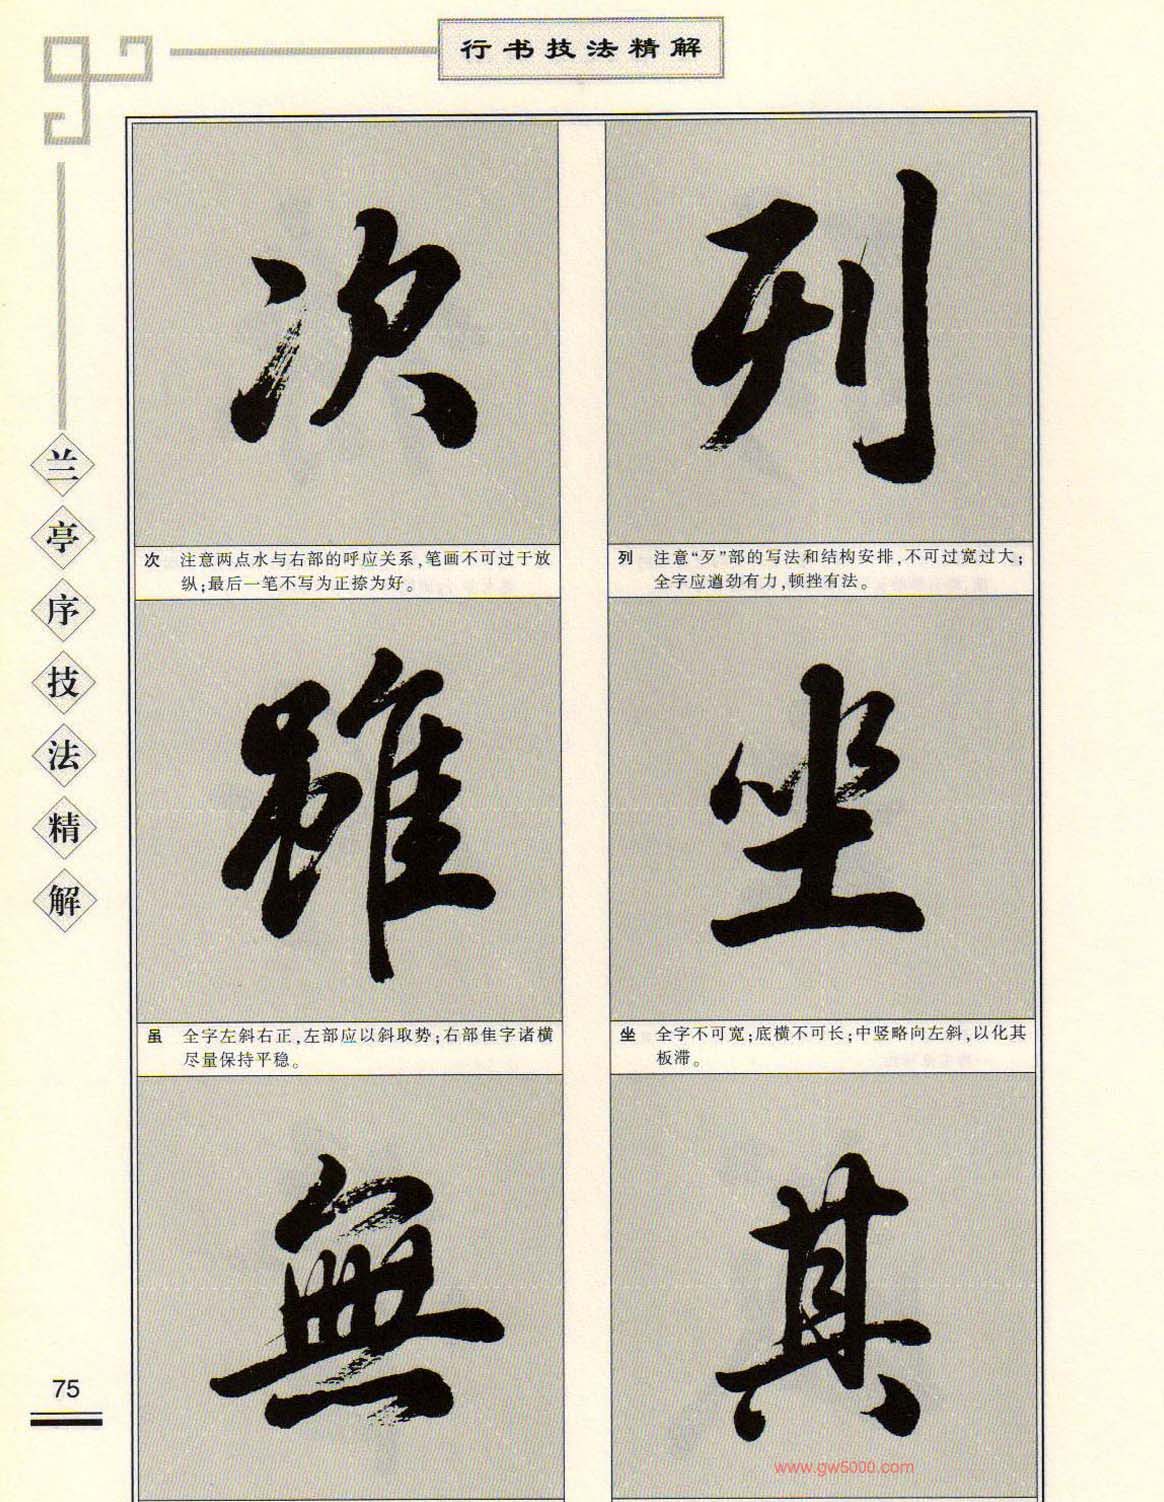 行书技法精解
兰亭序技法精解
列
次
列 注意“歹”部的写法和结构安排,不可过宽过大;
全字应遒劲有力,顿挫有法。
次 注意两点水与右部的呼应关系,笔画不可过于放
纵;最后一笔不写为正捺为好。
坐
雖
坐 全字不可宽;底横不可长;中竖略向左斜,以化其
板滞。
虽 全字左斜右正,左部应以斜取势;右部隹字诸横
尽量保持平稳。
其
無
75
www.gw5000.com